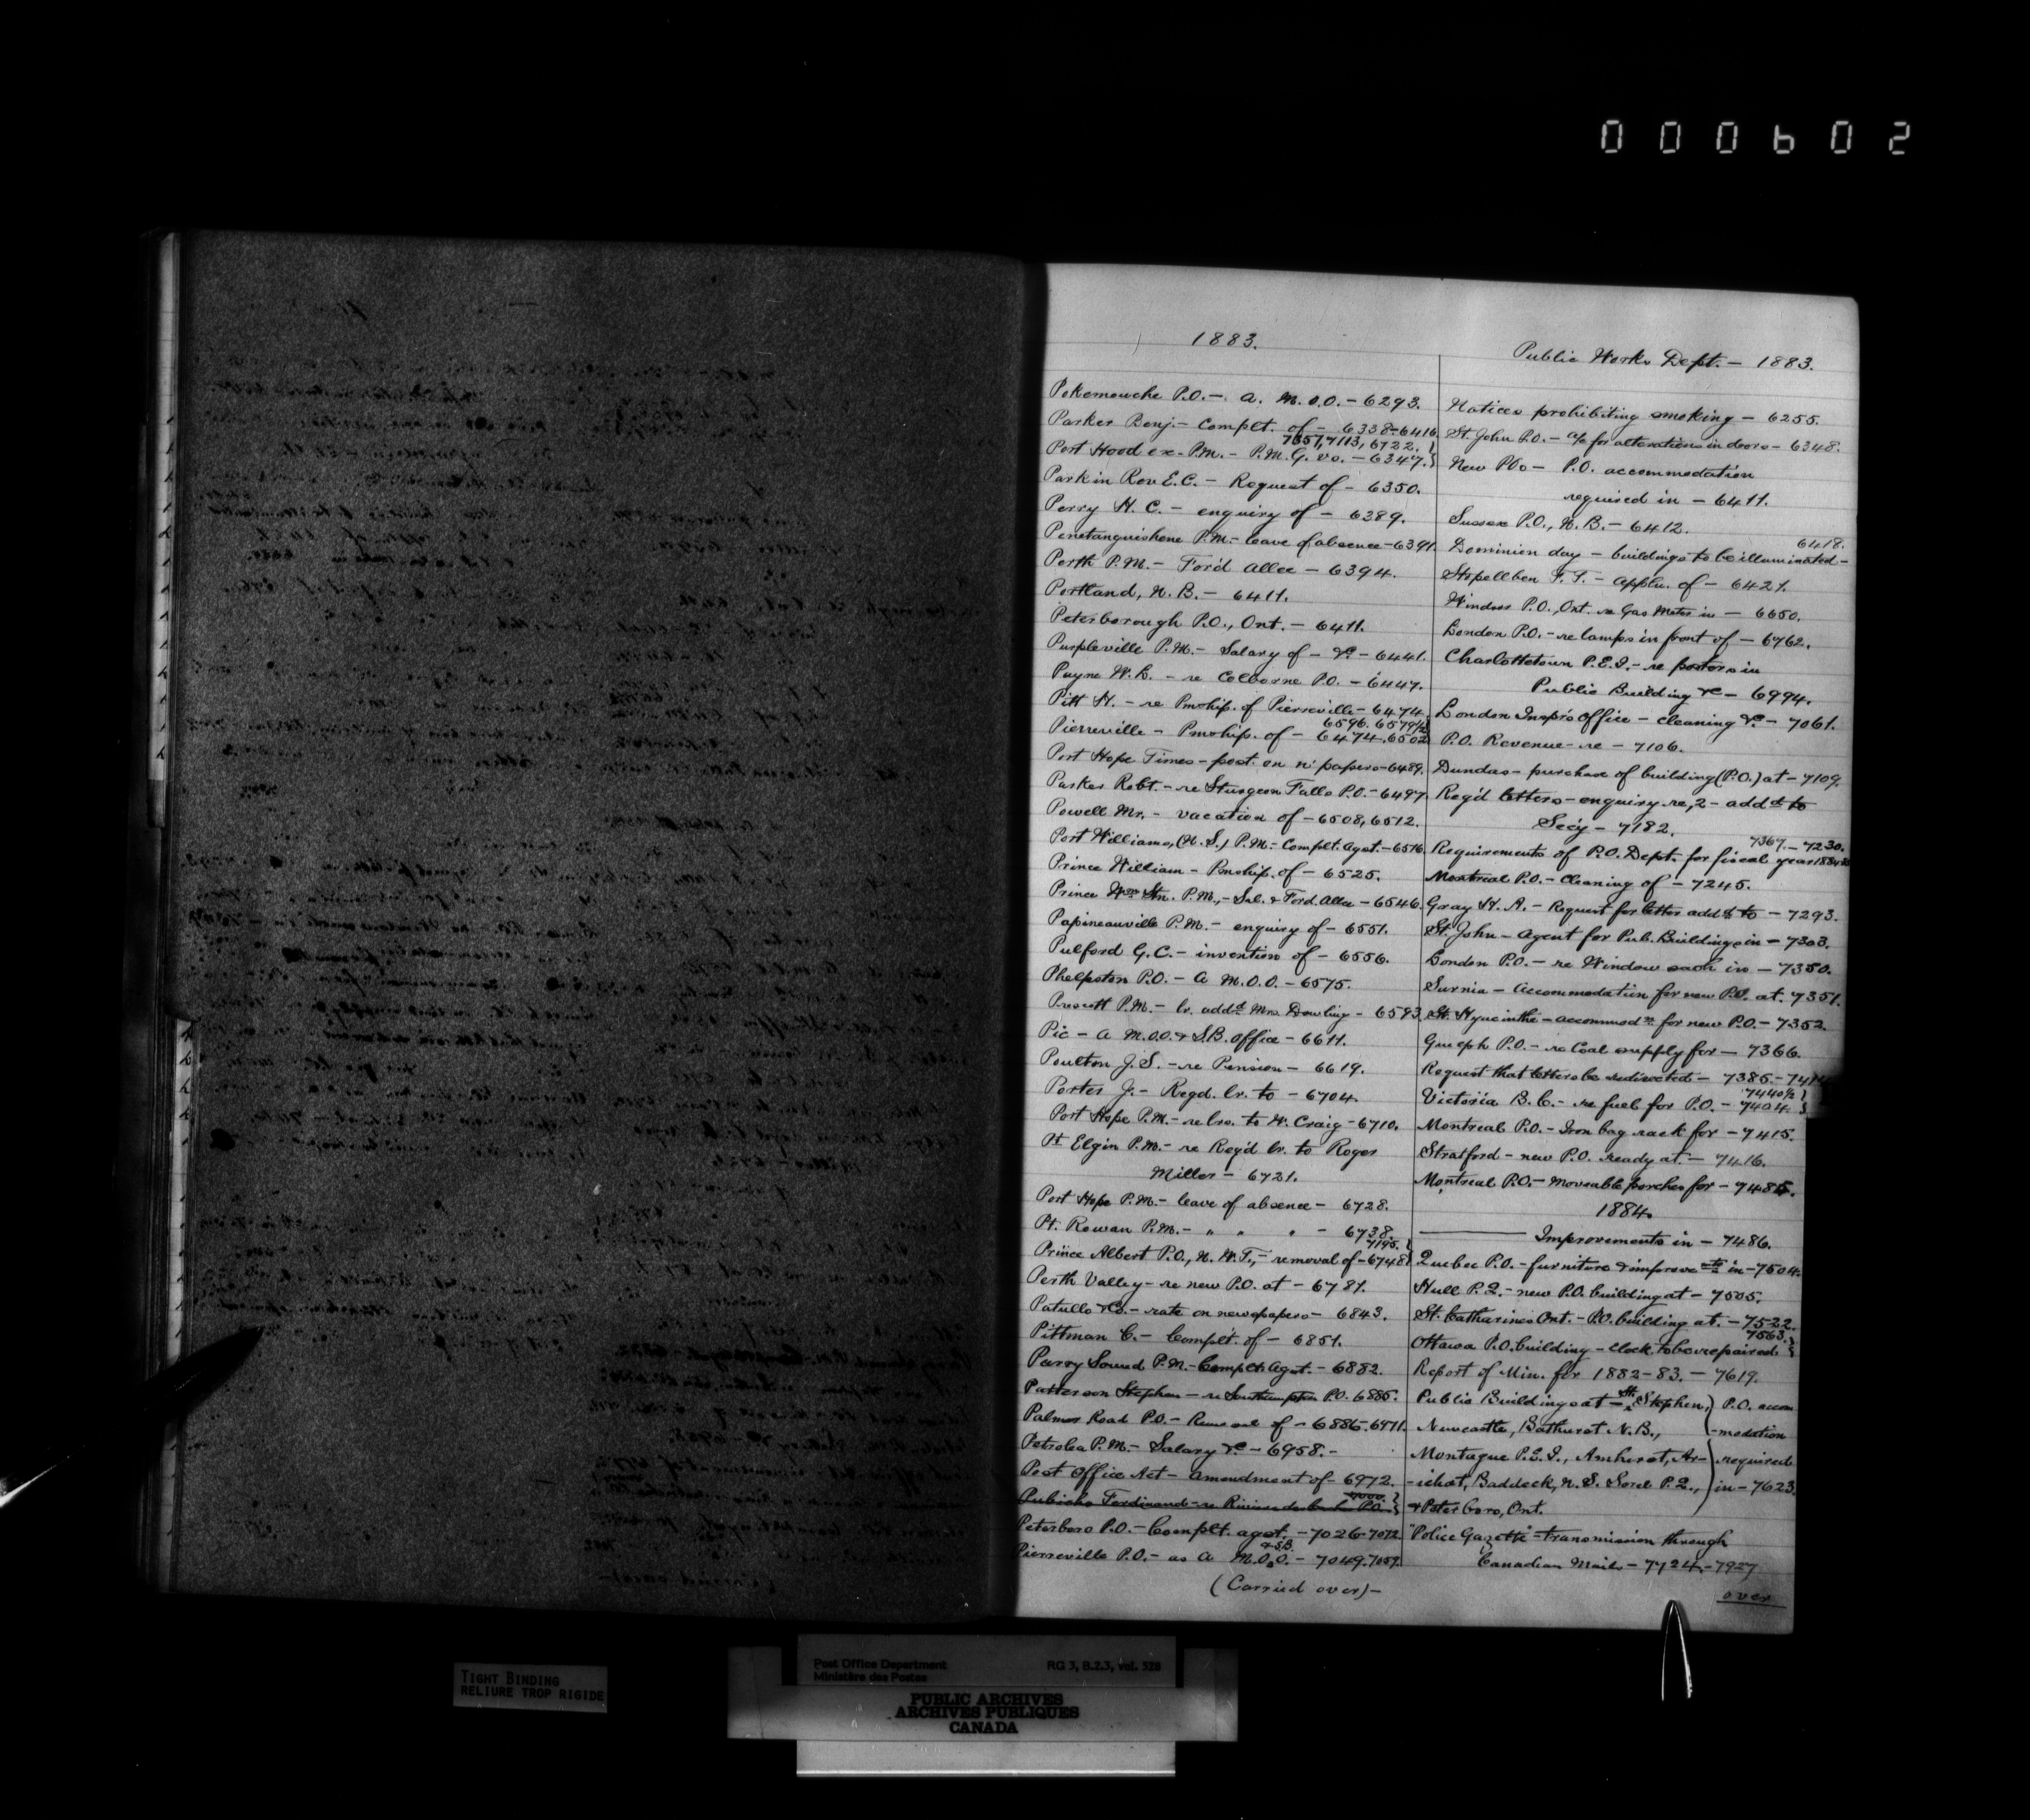 000602
1883.
Pokemouche P.O. - A. M.O.O. - 6293.
Parker Benj. - Complt. of - 6338-6416.
7357, 7113, 6722.
Port Hood ex-P.M. - P.M.G. vs. - 6347.
Parkin Rev E.C. - Request of - 6350.
Perry H. C. - enquiry of - 6389.
Penetanguishene P.M. - leave of absence - 6391.
Perth P.M. - Ford Allce - 6394.
Portland, N.B. - 6411.
Peterborough P.O., Ont. - 6411.
Purpleville P.M. - Salary of - &c - 6441.
Payne W.L. - re Colborne P.O. - 6447.
Pitt H. - re Pmship. of Pierreville - 6474.
6596. 6579½
Pierreville - Pmship. of - 6474, 6502
Port Hope Times - post. on n' papers - 6489.
Parker Robt. - re Sturgeon Falls P.O. - 6497
Powell Mr. - vacation of - 6508, 6512.
Port Williams, (N.S.) P.M. - Complt. Agst. - 6516.
Prince William - Pmship. of - 6525.
Prince Wm Stn. P.M., - Sal. & Ford. Allce - 6546.
Papineauville P.M. - enquiry of - 6551.
Pulford G.C. - invention of - 6556.
Phelpston P.O. - A M.O.O. - 6575.
Prescott P.M. - lr. addd Mrs. Dowling - 6593.
Pic - A M.O.O. & S.B. Office - 6611.
Poulton J.S. - re Pension - 6619.
Porter J. - Regd. lr. to - 6704.
Port Hope P.M. - re lrs. to W. Craig - 6710.
Pt Elgin P.M. - re Reg'd lr. to Roger
Miller - 6721.
Port Hope P.M. - leave of absence - 6728.
Pt. Rowan P.M. - " " " - 6738.
7195.
Prince Albert P.O., N.W.T., - removal of - 6748
Perth Valley - re new P.O. at - 6781.
Patullo &Co. - rate on newspapers - 6843.
Pittman C. - Complt. of - 6851.
Parry Sound P.M. - Complt. Agst. - 6882.
Patterson Stephen - re Southampton P.O. 6885.
Palmer Road P.O. - Removal of - 6886-6971.
Petrolea P.M. - Salary &c - 6958. -
Post Office Act - amendment of - 6972.
7000.
Ferdinand - re P.O.
Peterboro P.O. - Complt. agst. - 7026-7072
& S.B.
Pierreville P.O. - as A M.O.O. - 7049, 7059.
(Carried over) -
Public Works Dept. - 1883.
Notices prohibiting smoking - 6255.
St. John P.O. - a/c for alterations in doors - 6348.
New POs - P.O. accommodation
required in - 6411.
Sussex P.O., N.B. - 6412.
6418.
Dominion day - buildings to be illuminated -
Stopellben F. T. - Appln. of - 6421.
Windsor P.O., Ont. re Gas Meter in - 6650.
London P.O. - re lamps in front of - 6762.
Charlottetown P.E.I. - re porters in
Public Building &c - 6994.
London Inspr's Office - cleaning &c. - 7061.
P.O. Revenue - re - 7106.
Dundas - purchase of building (P.O.) at - 7109.
Reg'd letters - enquiry re, 2 - addd to
Sec'y - 7182.
7367. - 7230.
Requirements of P.O. Dept. for fiscal year 1884-85
Montreal P.O. - Cleaning of - 7245.
Gray H. A. - Request for letter addd to - 7293.
St. John - Agent for Pub. Buildings in - 7303.
London P.O. - re Window sash in - 7350.
Sarnia - Accommodation for new P.O. at. 7351.
St. Hyacinthe - accommodn for new P.O. - 7352.
Guelph P.O. - re Coal supply for - 7366.
Request that letters be redirected - 7385. - 741
7440½
Victoria B.C. - re fuel for P.O. - 7404.
Montreal P.O. - Iron bag rack for - 7415.
Stratford - new P.O. ready at - 7416.
Montreal P.O. - moveable porches for - 7485.
1884.
Improvements in - 7486.
Quebec P.O. - furniture & improvements in - 7504.
Hull P.Q. - new P.O. building at - 7505.
St. Catharines Ont. - P.O. building at. - 7522.
7563.
Ottawa P.O. building - clock to be repaired
Report of Min. for 1882-83. - 7619.
Public Buildings at - St. Stephen, P.O. accom
Newcastle, Bathurst N.B., -modation
Montague P.E.I., Amherst, Ar- required
-ichat, Baddeck, N.S. Sorel P.Q., in - 7623.
& Peterboro, Ont.
"Police Gazette" - transmission through
Canadian Mails - 7724. - 7927
over
TIGHT BINDING
RELIURE TROP RIGIDE
Post Office Department RG 3, B.2.3, vol. 528
Ministère des Postes
PUBLIC ARCHIVES
ARCHIVES PUBLIQUES
CANADA